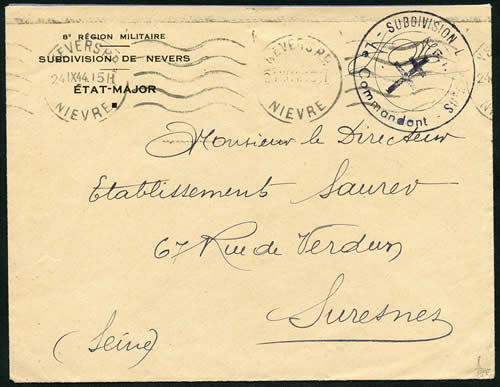 8e RÉGION MILITAIRE
SUBDIVISION DE NEVERS
ÉTAT-MAJOR
NEVERS RP
24 IX 44. 15H
NIEVRE
NEVERS RP
NIEVRE
SUBDIVISION
Le Commandant
Monsieur le Directeur
Etablissement Saurer
67 Rue de Verdun
Suresnes
(Seine)